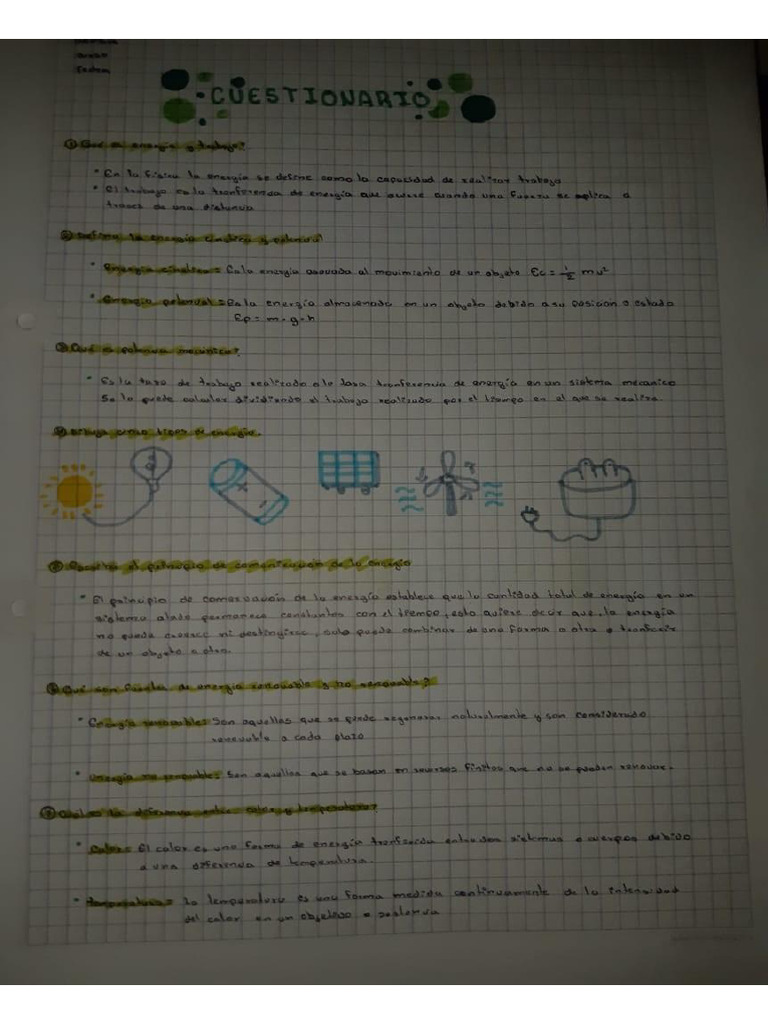 CUESTIONARIO
① Qué es energía y trabajo?
• En la física la energía se define como la capacidad de realizar trabajo
• El trabajo es la tranferencia de energía que ocurre cuando una fuerza se aplica a
traves de una distancia
② Defina la energia cinetica y potencial
• Energia cinetica = Es la energía asociada al movimiento de un objeto Ec = 1/2 mv²
• Energia potencial = Es la energía almacenada en un objeto debido a su posicion o estado
Ep = m • g • h
③ Qué es potencia mecanica?
• Es la tasa de trabajo realizado o la tasa tranferencia de energía en un sistema mecanico
Se lo puede calcular dividiendo el trabajo realizado por el tiempo en el que se realiza.
④ Dibuja tipos de energía.
⑤ el principio de de la energía
• El principio de conservación de la energía establece que la cantidad total de energía en un
sistema permanece constantes con el tiempo, esto quiere decir que la energía
no puede crearse ni, solo puede combinar de una forma a otra o tranferir
de un objeto a otro.
⑥ Qué son fuentes de energía renovable y no renovable?
• Energía renovables: Son aquellas que se puede regenerar naturalmente y son considerado
a cada plazo
• Energia no renovable: Son aquellos que se basan en finitos que no se pueden renovar.
⑦ Cual es la diferencia entre calor y temperatura?
• Calor: El calor es una forma de energía entre dos sistemas o cuerpos debido
a una diferencia de temperatura.
• temperatura: la temperatura es una forma medida continuamente de la intensidad
del calor en un o